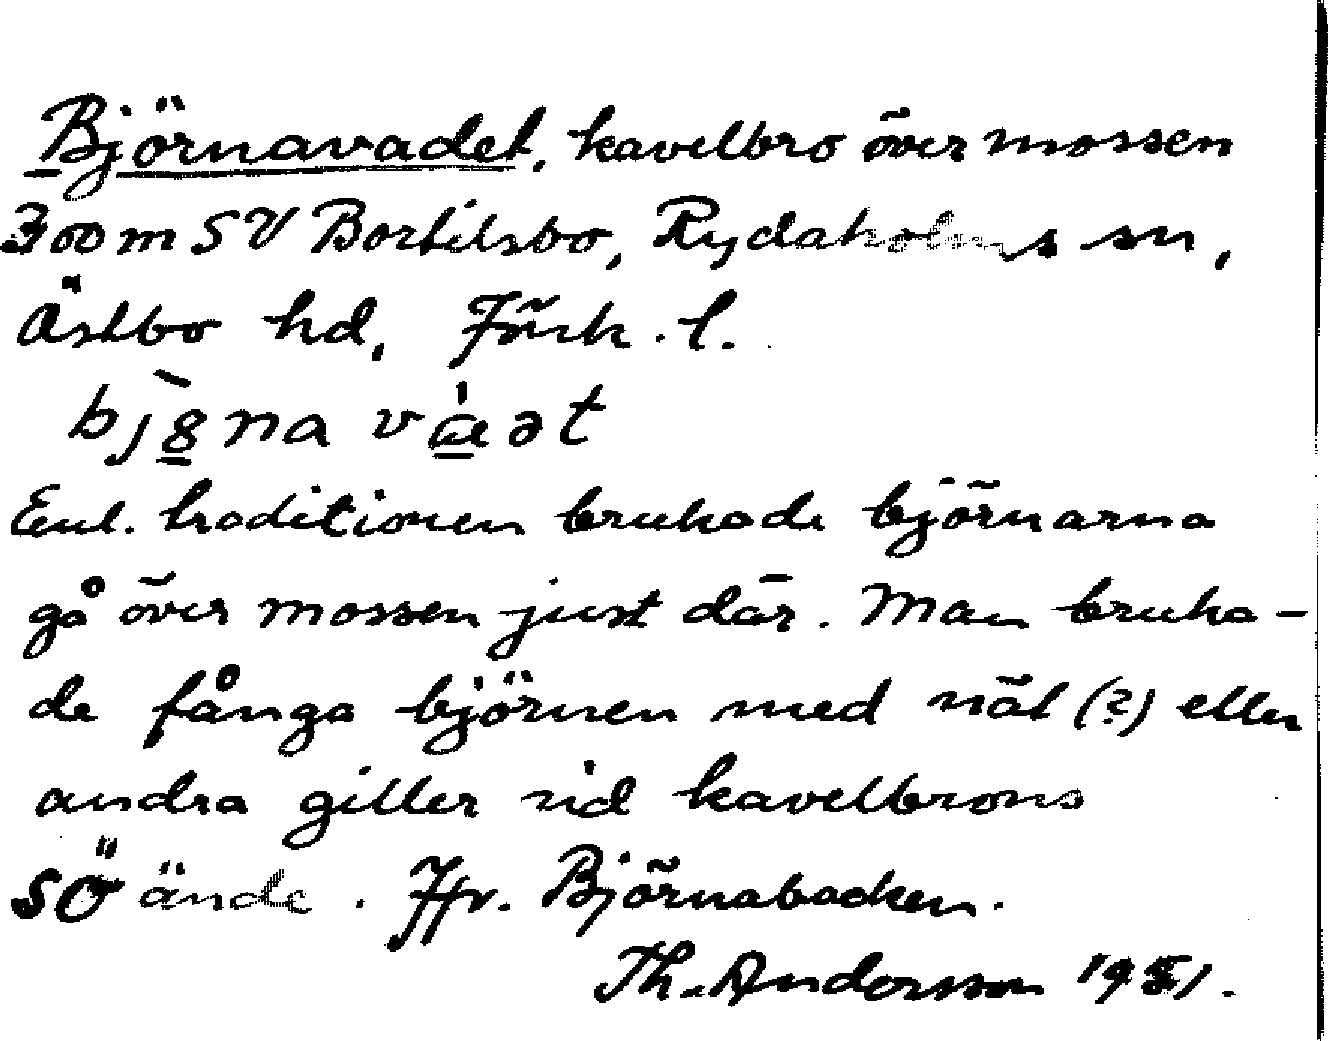 Björnavadet, kavelbro över mossen
300 m SV Bortilsbo, Rydaholms sn,
Östbo hd, Jönk. l.
bjö̱̀na vɑ̱̀ət
Enl. traditionen brukade björnarna
gå över mossen just där. Man bruka-
de fånga björnen med nät (?) eller
andra giller vid kavelbrons
SÖ ände. Jfr. Björnabacken.
Th. Andersson 1951.